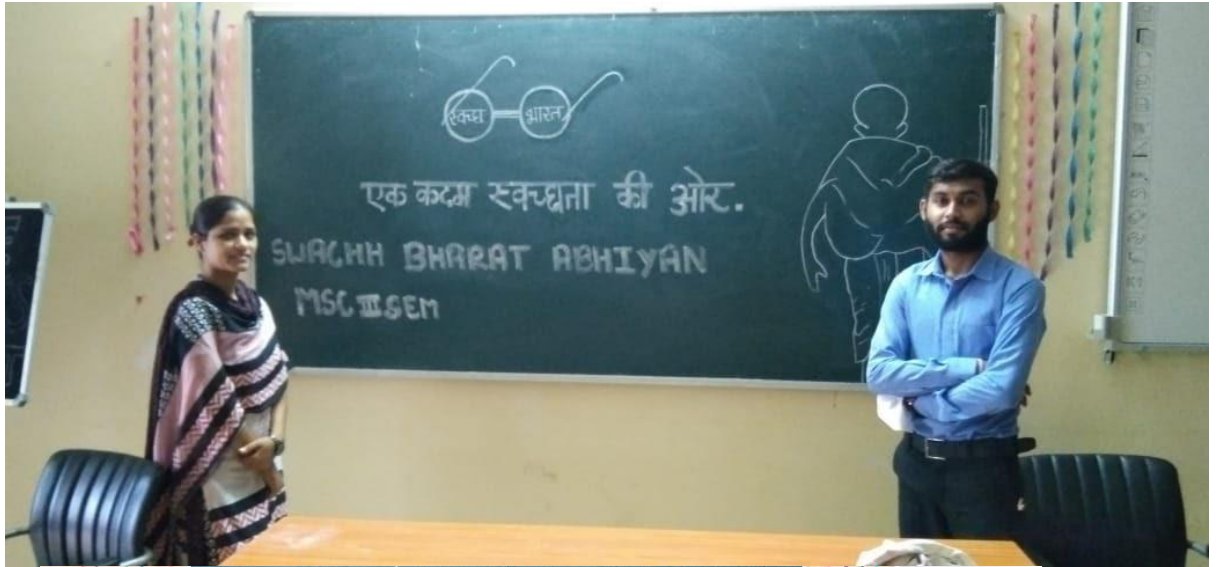 स्वच्छ भारत
एक कदम स्वच्छता की ओर.
SWACHH BHARAT ABHIYAN
MSC III SEM